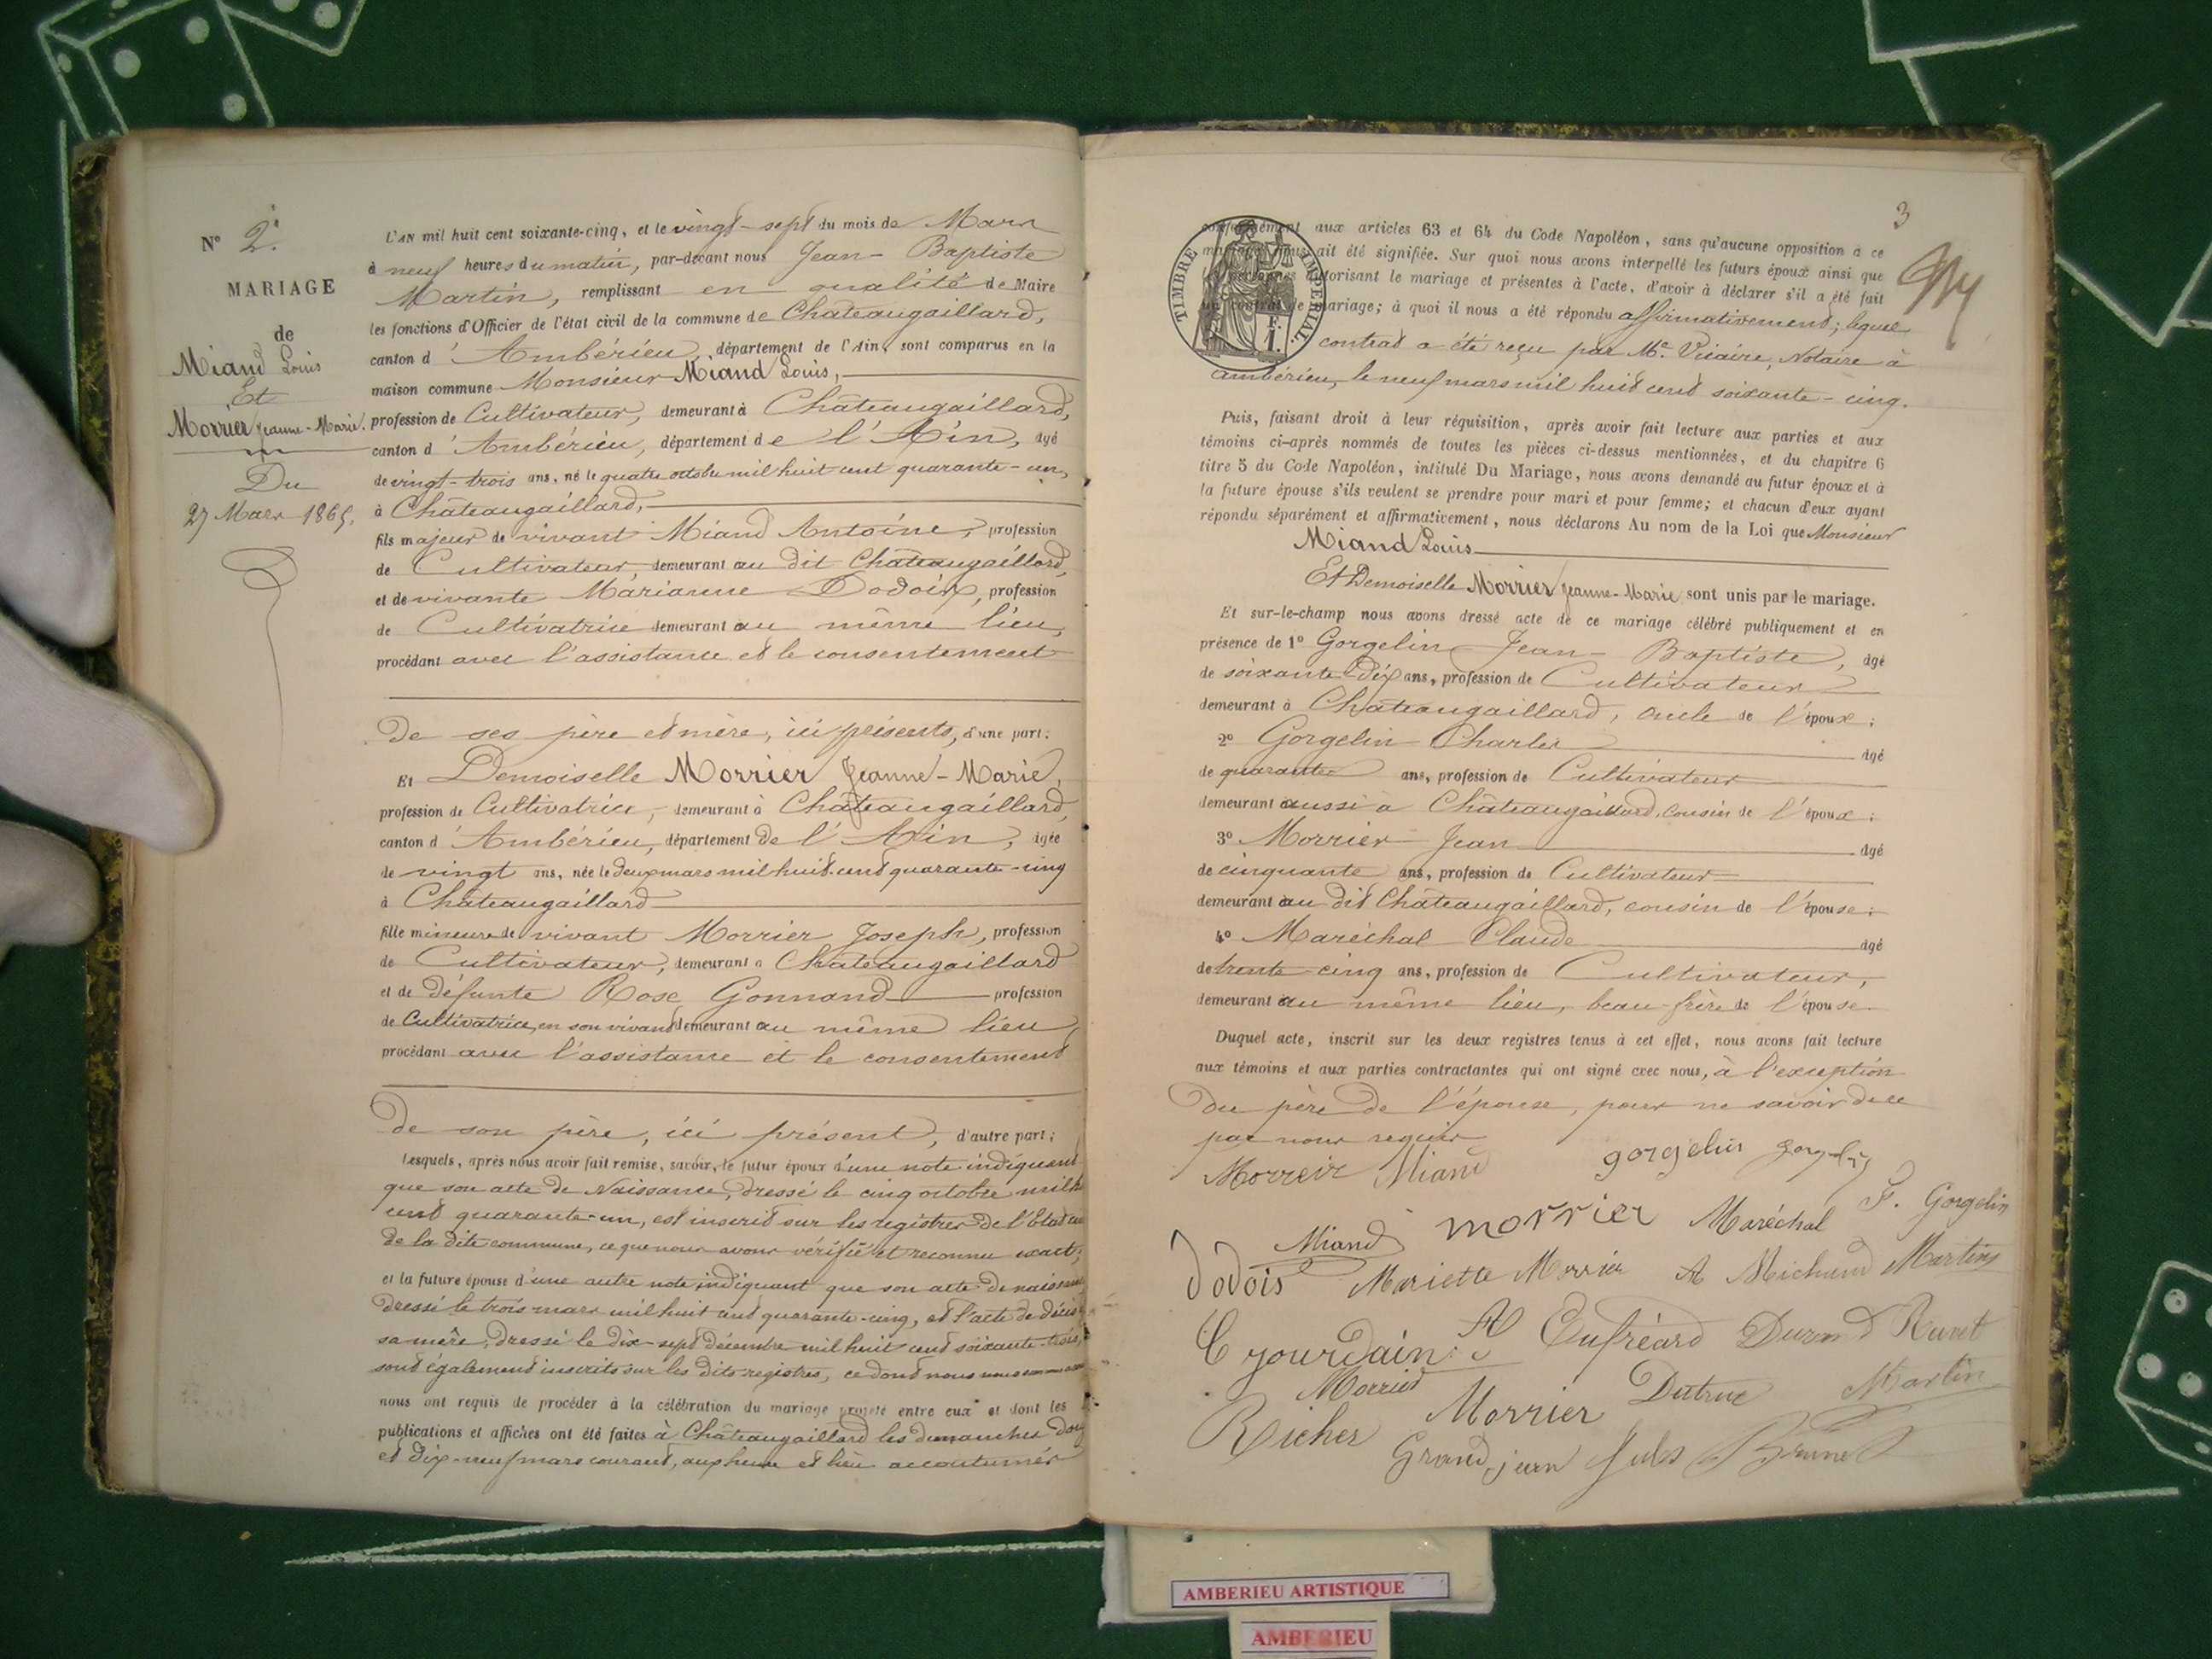 N° 2.
MARIAGE
de
Miand Louis
Et
Morrier Jeanne-Marie.
Du
27 Mars 1865.
L'AN mil huit cent soixante-cinq, et le vingt-sept du mois de Mars
à neuf heures du matin, par-devant nous Jean-Baptiste
Martin, remplissant en qualité de Maire
les fonctions d'Officier de l'état civil de la commune de Châteaugaillard,
canton d'Ambérieu, département de l'Ain, sont comparus en la
maison commune Monsieur Miand Louis,
profession de Cultivateur, demeurant à Châteaugaillard,
canton d'Ambérieu, département de l'Ain, âgé
de vingt-trois ans, né le quatre octobre mil huit cent quarante-un,
à Châteaugaillard,
fils majeur de vivant Miand Antoine, profession
de Cultivateur, demeurant au dit Châteaugaillard,
et de vivante Marianne Dodoin, profession
de Cultivatrice demeurant au même lieu,
procédant avec l'assistance et le consentement
de ses père et mère, ici présents, d'une part;
Et Demoiselle Morrier Jeanne-Marie,
profession de Cultivatrice, demeurant à Châteaugaillard,
canton d'Ambérieu, département de l'Ain, âgée
de vingt ans, née le deux mars mil huit cent quarante-cinq
à Châteaugaillard
fille mineure de vivant Morrier Joseph, profession
de Cultivateur, demeurant à Châteaugaillard
et de défunte Rose Gonnand profession
de Cultivatrice, en son vivant demeurant au même lieu,
procédant avec l'assistance et le consentement
de son père, ici présent, d'autre part;
Lesquels, après nous avoir fait remise, savoir, le futur époux d'une note indiquant
que son acte de Naissance, dressé le cinq octobre mil h
cent quarante-un, est inscrit sur les registres de l'Etat
de la dite commune, ce que nous avons vérifié et reconnu exact;
et la future épouse d'une autre note indiquant que son acte de naissance
dressé le trois mars mil huit cent quarante-cinq, et l'acte de décès
sa mère, dressé le dix-sept décembre mil huit cent soixante-trois,
sont également inscrits sur les dits registres, ce dont nous nous
nous ont requis de procéder à la célébration du mariage projeté entre eux et dont les
publications et affiches ont été faites à Châteaugaillard les dimanches
et dix-neuf mars courant, aux heure et lieu accoutumés
3
TIMBRE IMPERIAL
1 F.
conformément aux articles 63 et 64 du Code Napoléon, sans qu'aucune opposition à ce
mariage nous ait été signifiée. Sur quoi nous avons interpellé les futurs époux ainsi que
les personnes autorisant le mariage et présentes à l'acte, d'avoir à déclarer s'il a été fait
un contrat de mariage; à quoi il nous a été répondu affirmativement; lequel
contrat a été reçu par Me. Vicaire, Notaire à
Ambérieu, le neuf mars mil huit cent soixante-cinq.
Puis, faisant droit à leur réquisition, après avoir fait lecture aux parties et aux
témoins ci-après nommés de toutes les pièces ci-dessus mentionnées, et du chapitre 6
titre 5 du Code Napoléon, intitulé Du Mariage, nous avons demandé au futur époux et à
la future épouse s'ils veulent se prendre pour mari et pour femme; et chacun d'eux ayant
répondu séparément et affirmativement, nous déclarons Au nom de la Loi que Monsieur
Miand Louis
Et Demoiselle Morrier Jeanne-Marie sont unis par le mariage.
Et sur-le-champ nous avons dressé acte de ce mariage célébré publiquement et en
présence de 1° Gorgelin Jean-Baptiste, âgé
de soixante-dix ans, profession de Cultivateur
demeurant à Châteaugaillard, oncle de l'époux;
2° Gorgelin Charles âgé
de quarante ans, profession de Cultivateur
demeurant aussi à Châteaugaillard, cousin de l'époux;
3° Morrier Jean âgé
de cinquante ans, profession de Cultivateur
demeurant au dit Châteaugaillard, cousin de l'épouse;
4° Maréchal Claude âgé
de trente-cinq ans, profession de Cultivateur,
demeurant au même lieu, beau-frère de l'épouse
Duquel acte, inscrit sur les deux registres tenus à cet effet, nous avons fait lecture
aux témoins et aux parties contractantes qui ont signé avec nous, à l'exception
du père de l'épouse, pour ne savoir de ce
par nous requis
Morreir Miand gorgelin
F. Gorgelin
Miand morrier Maréchal
Dodois Mariette Morrier A Michaud Martin
C Jourdain A Eufréard Durand Ruret
Morrier
Morrier Dutruc Martin
Richer Grandjean Jules Brunet
AMBERIEU ARTISTIQUE
AMBERIEU